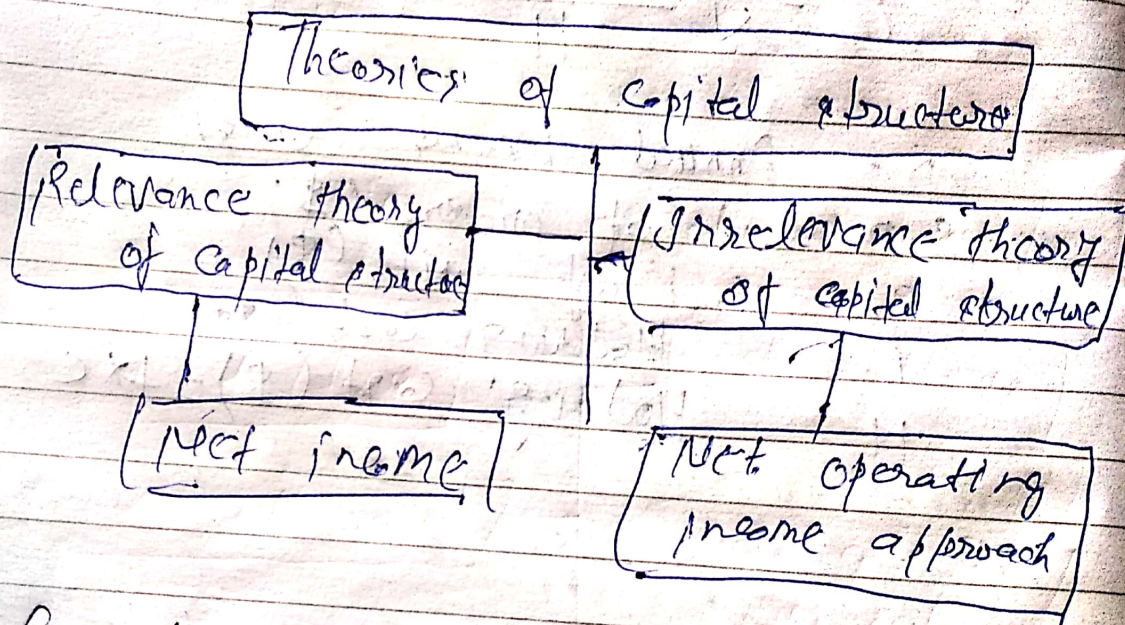 Theories of Capital structure
Relevance theory
of Capital structure
Irrelevance theory
of capital structure
Net income
Net operating
income approach